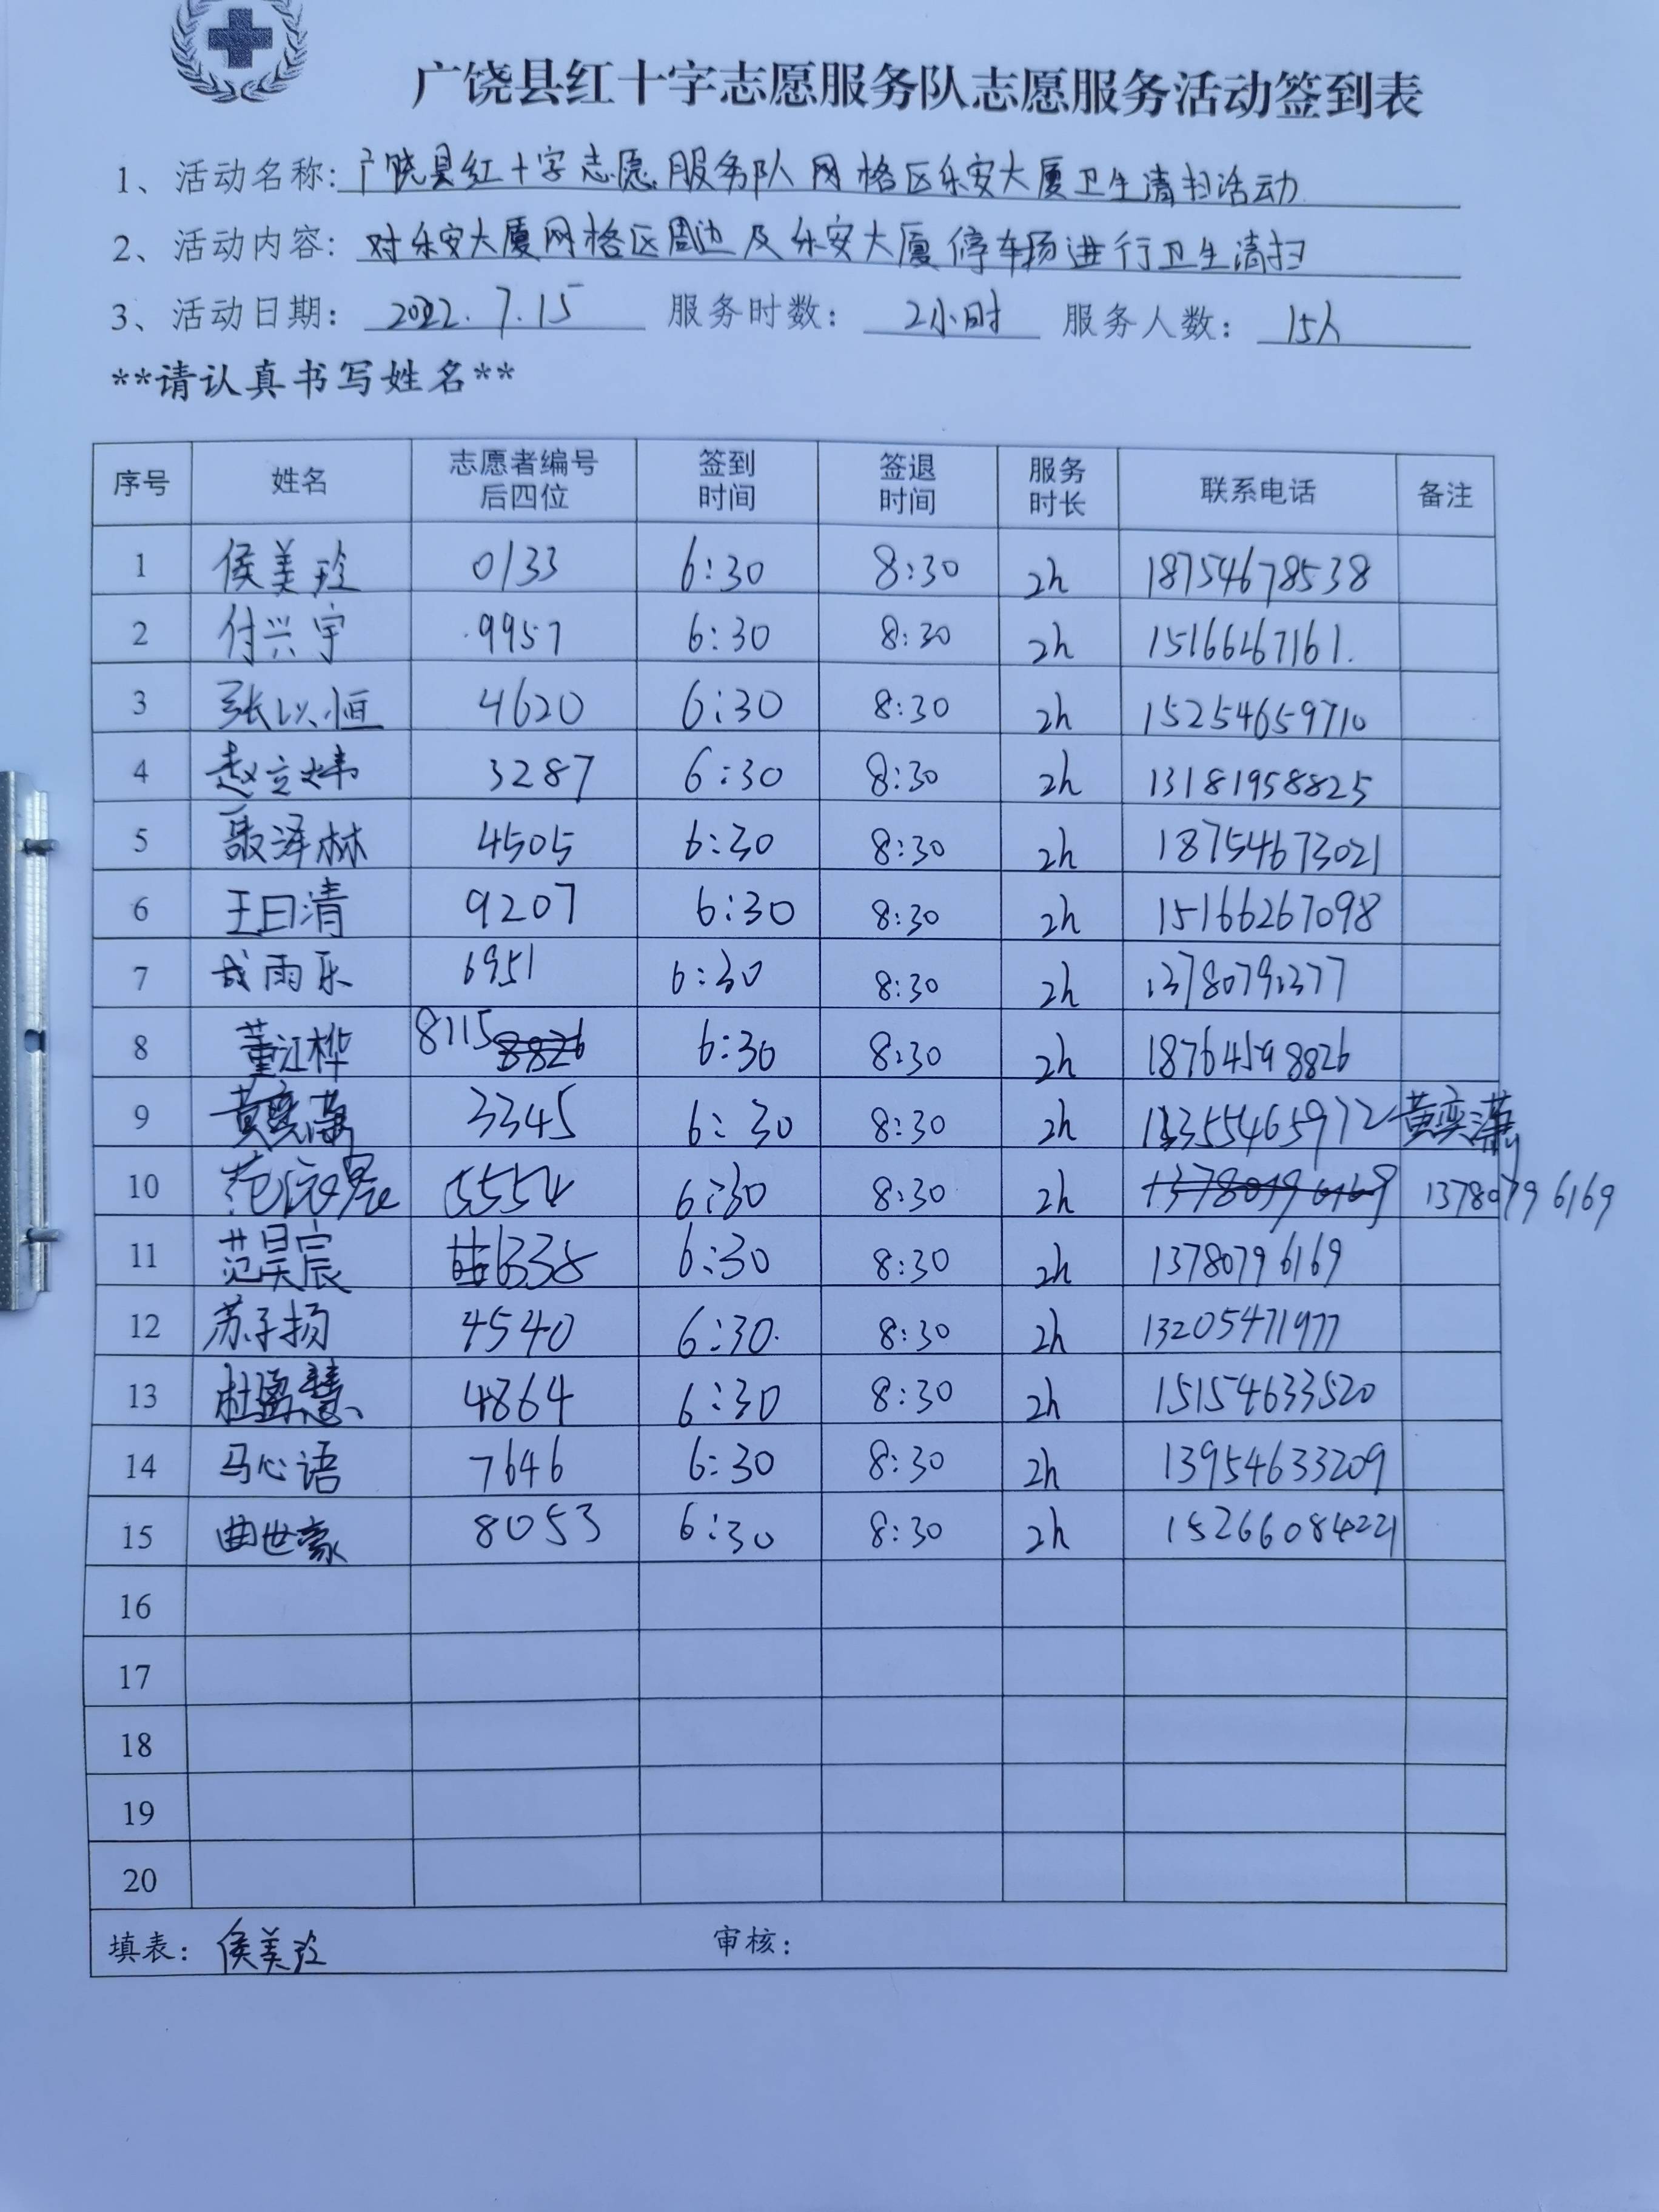 广饶县红十字志愿服务队志愿服务活动签到表
1、活动名称:广饶县红十字志愿服务队网格区乐安大厦卫生清扫活动
2、活动内容:对乐安大厦网格区周边及乐安大厦停车场进行卫生清扫
3、活动日期:2022.7.15 服务时数:2小时 服务人数:15人
**请认真书写姓名**
序号 姓名 志愿者编号后四位 签到时间 签退时间 服务时长 联系电话 备注
1 侯美玲 0133 6:30 8:30 2h 18754678538
2 付兴宇 9957 6:30 8:30 2h 15166267161
3 张以恒 4620 6:30 8:30 2h 15254659710
4 赵立炜 3287 6:30 8:30 2h 13181958825
5 聂泽林 4505 6:30 8:30 2h 18754673021
6 王日清 9207 6:30 8:30 2h 15166267098
7 成雨乐 6951 6:30 8:30 2h 13780791377
8 董江桦 8115 8826 6:30 8:30 2h 18764598826
9 黄奕潇 3345 6:30 8:30 2h 13355465972 黄奕潇
10 范 5554 6:30 8:30 2h 13780796169 13780796169
11 范昊宸 6338 6:30 8:30 2h 13780796169
12 苏子扬 4540 6:30 8:30 2h 13205471977
13 杜盈慧 4864 6:30 8:30 2h 15154633520
14 马心语 7646 6:30 8:30 2h 13954633209
15 曲世豪 8053 6:30 8:30 2h 15266084221
16
17
18
19
20
填表:侯美玲 审核: